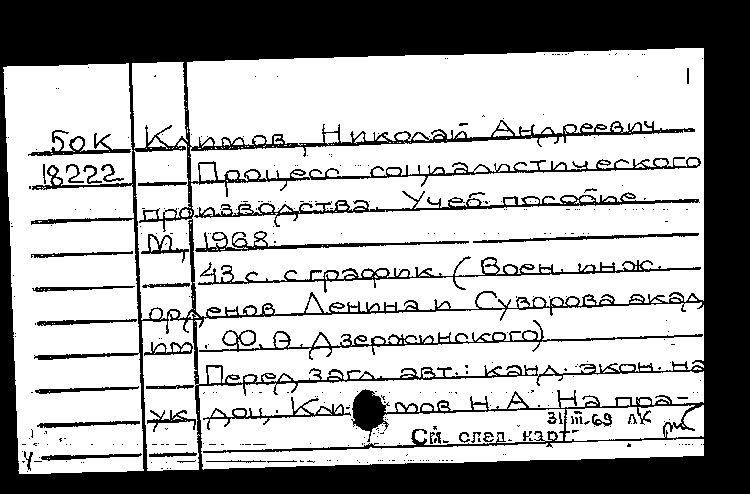 50К Климов, Николай Андреевич.
18222 Процесс социалистического
производства. Учеб. пособие.
М., 1968.
43 с. с график. (Воен. инж.
орденов Ленина и Суворова акад.
им. Ф. Э. Дзержинского)
Перед загл. авт.: канд. экон. на
ук, доц. Климов Н.А. На пра-
31/III-69 ЛК
См. след. карт.